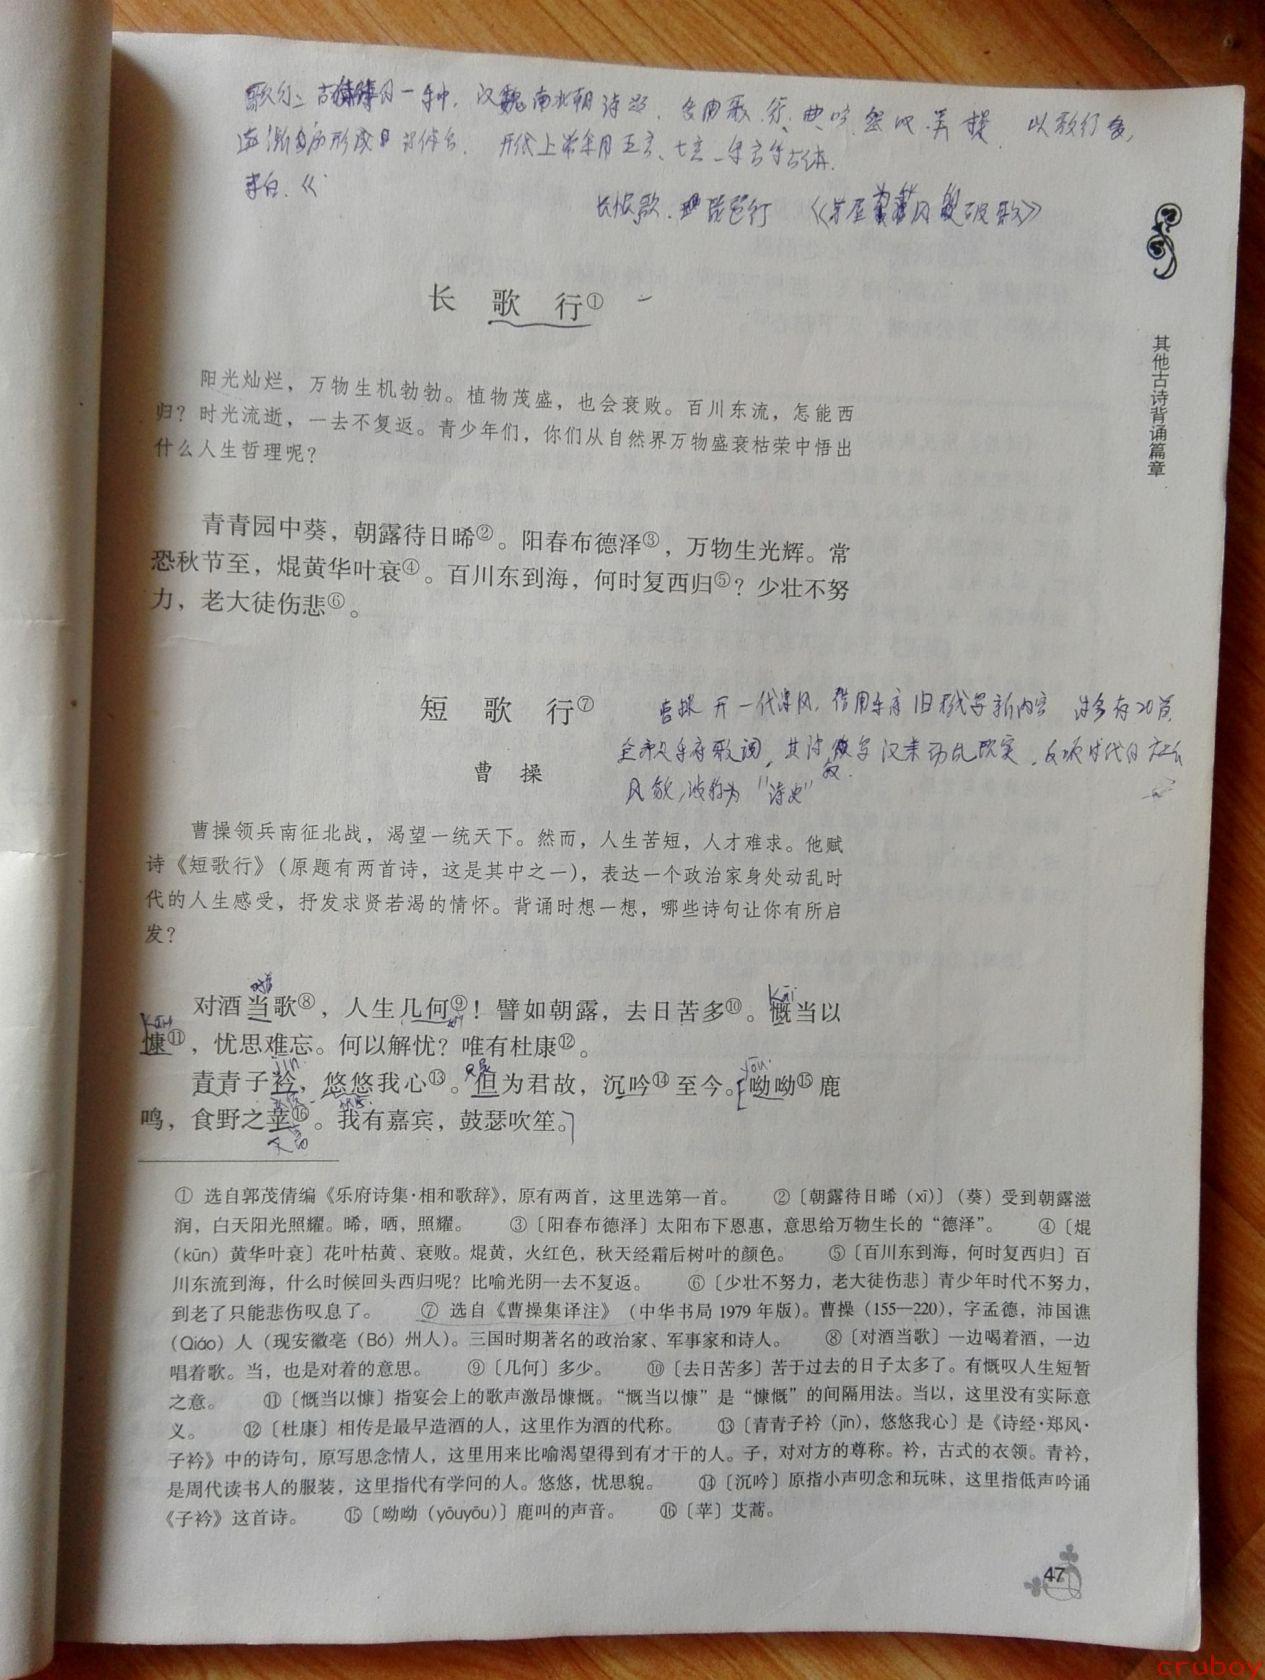 歌行：古体诗的一种，汉魏南北朝诗题，多由歌、行、曲、吟
开代上常采用五言、七言
李白、《
长恨歌、琵琶行 《茅屋 风 破歌》
长 歌 行①
其他古诗背诵篇章
阳光灿烂，万物生机勃勃。植物茂盛，也会衰败。百川东流，怎能西
归？时光流逝，一去不复返。青少年们，你们从自然界万物盛衰枯荣中悟出
什么人生哲理呢？
青青园中葵，朝露待日晞②。阳春布德泽③，万物生光辉。常
恐秋节至，焜黄华叶衰④。百川东到海，何时复西归⑤？少壮不努
力，老大徒伤悲⑥。
短 歌 行⑦
曹操 开一代 风，借用乐府旧 写新内容
曹 操
全部是乐府歌词，其诗 写汉末动乱现实，反映时代的
风貌，被称为“诗史”
曹操领兵南征北战，渴望一统天下。然而，人生苦短，人才难求。他赋
诗《短歌行》（原题有两首诗，这是其中之一），表达一个政治家身处动乱时
代的人生感受，抒发求贤若渴的情怀。背诵时想一想，哪些诗句让你有所启
发？
对酒当歌⑧，人生几何⑨！譬如朝露，去日苦多⑩。慨当以
慷⑪，忧思难忘。何以解忧？唯有杜康⑫。
青青子衿，悠悠我心⑬。但为君故，沉吟⑭至今。呦呦⑮鹿
鸣，食野之苹⑯。我有嘉宾，鼓瑟吹笙。
① 选自郭茂倩编《乐府诗集·相和歌辞》，原有两首，这里选第一首。 ②〔朝露待日晞（xī）〕（葵）受到朝露滋
润，白天阳光照耀。晞，晒，照耀。 ③〔阳春布德泽〕太阳布下恩惠，意思给万物生长的“德泽”。 ④〔焜
（kūn）黄华叶衰〕花叶枯黄、衰败。焜黄，火红色，秋天经霜后树叶的颜色。 ⑤〔百川东到海，何时复西归〕百
川东流到海，什么时候回头西归呢？比喻光阴一去不复返。 ⑥〔少壮不努力，老大徒伤悲〕青少年时代不努力，
到老了只能悲伤叹息了。 ⑦ 选自《曹操集译注》（中华书局1979年版）。曹操（155—220），字孟德，沛国谯
（Qiáo）人（现安徽亳（Bó）州人）。三国时期著名的政治家、军事家和诗人。 ⑧〔对酒当歌〕一边喝着酒，一边
唱着歌。当，也是对着的意思。 ⑨〔几何〕多少。 ⑩〔去日苦多〕苦于过去的日子太多了。有慨叹人生短暂
之意。 ⑪〔慨当以慷〕指宴会上的歌声激昂慷慨。“慨当以慷”是“慷慨”的间隔用法。当以，这里没有实际意
义。 ⑫〔杜康〕相传是最早造酒的人，这里作为酒的代称。 ⑬〔青青子衿（jīn），悠悠我心〕是《诗经·郑风·
子衿》中的诗句，原写思念情人，这里用来比喻渴望得到有才干的人。子，对对方的尊称。衿，古式的衣领。青衿，
是周代读书人的服装，这里指代有学问的人。悠悠，忧思貌。 ⑭〔沉吟〕原指小声叨念和玩味，这里指低声吟诵
《子衿》这首诗。 ⑮〔呦呦（yōuyōu）〕鹿叫的声音。 ⑯〔苹〕艾蒿。
47
cruboy